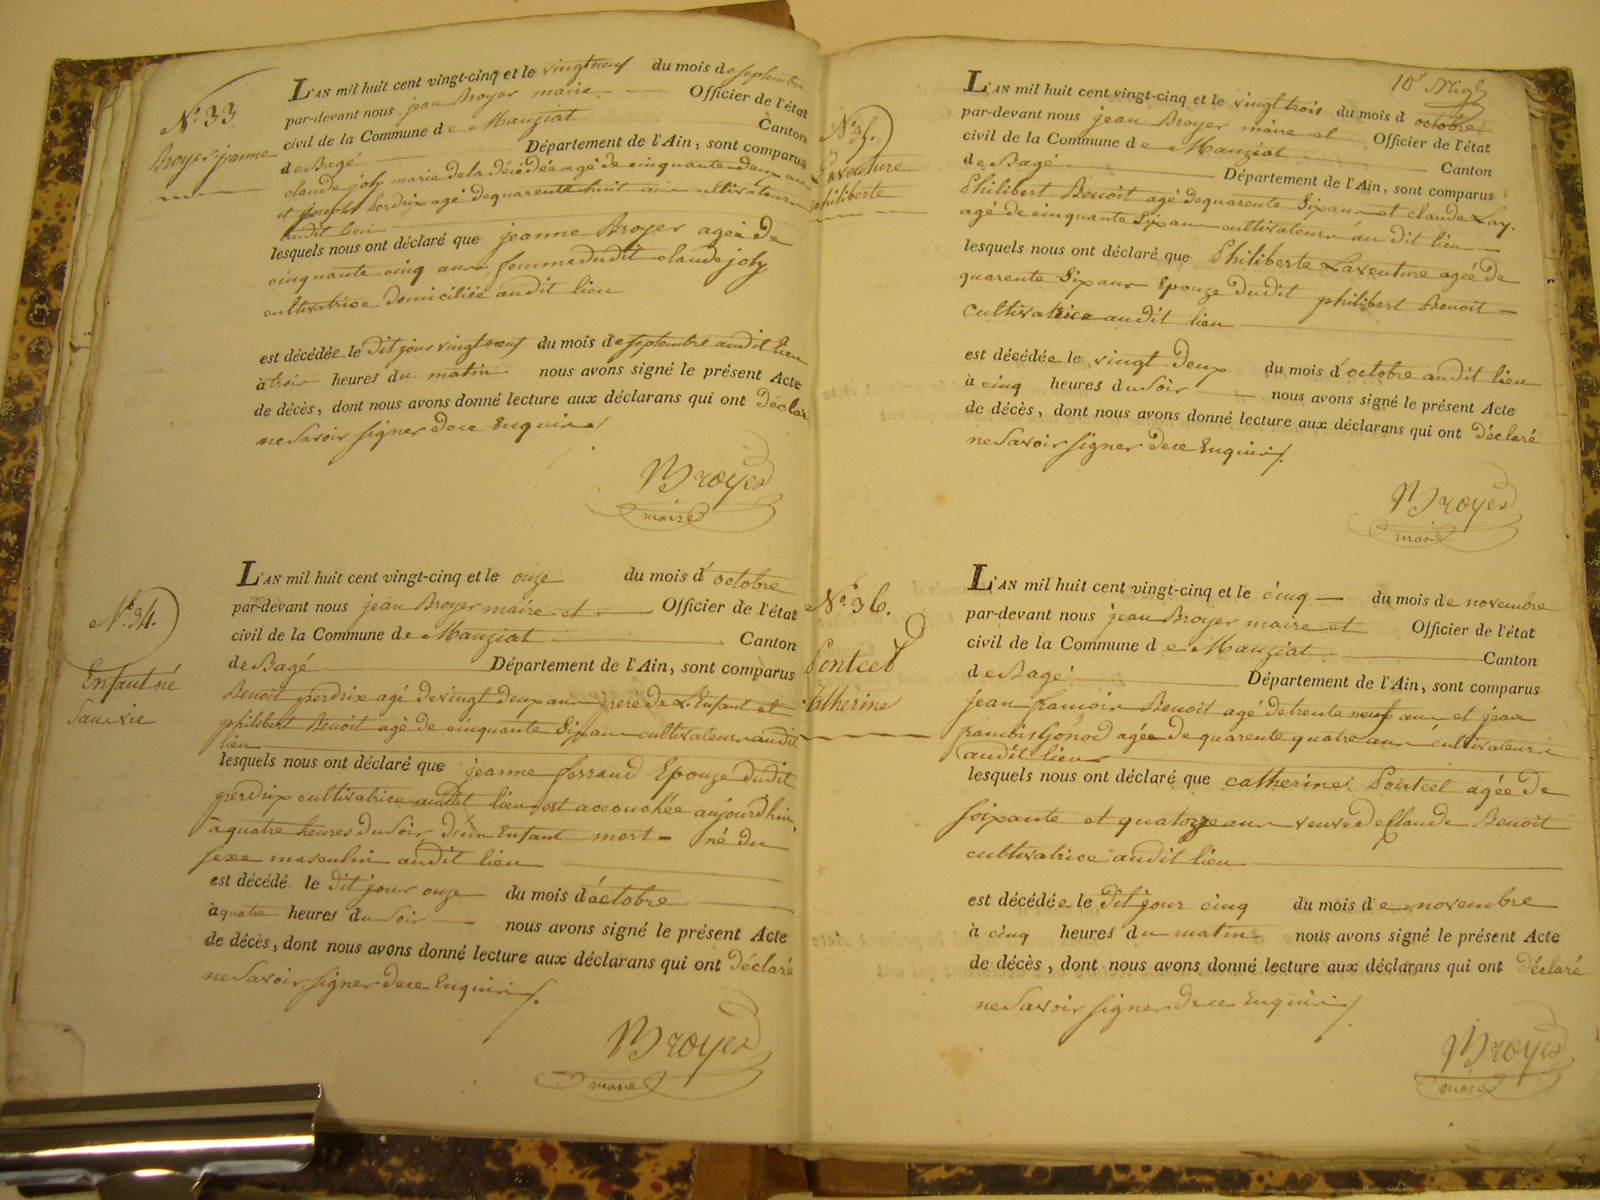 N.º 33
Broyer jeanne
L'AN mil huit cent vingt-cinq et le vingt neuf du mois de septembre
par-devant nous jean Broyer maire Officier de l'état
civil de la Commune de Manziat Canton
de Bagé Département de l'Ain, sont comparus
claude joly marie de la décédée agé de cinquante deux ans
et joseph perdrix agé de quarente huit ans cultivateurs
audit lieu
lesquels nous ont déclaré que jeanne Broyer agée de
cinquante cinq ans femme dudit claude joly
cultivatrice domiciliée audit lieu
est décédée le dit jour vingt neuf du mois de septembre audit lieu
à trois heures du matin nous avons signé le présent Acte
de décès, dont nous avons donné lecture aux déclarans qui ont Déclar
ne Savoir signer de ce Enquis
Broyer
maire
N.º 34.
Enfant né
Sans vie
L'AN mil huit cent vingt-cinq et le onze du mois d'octobre
par-devant nous jean Broyer maire et Officier de l'état
civil de la Commune de Manziat Canton
de Bagé Département de l'Ain, sont comparus
Benoit perdrix agé de vingt deux ans père de L'Enfant et
philibert Benoit agé de cinquante Six ans cultivateurs audit
lieu
lesquels nous ont déclaré que jeanne ferrand Epouze dudit
perdrix cultivatrice audit lieu est accouchée aujourdhui
à quatre heures du Soir, d'un Enfant mort-né du
sexe masculin audit lieu
est décédé le dit jour onze du mois d'octobre
à quatre heures du Soir nous avons signé le présent Acte
de décès, dont nous avons donné lecture aux déclarans qui ont Déclaré
ne Savoir signer de ce Enquis
Broyer
maire
10.e
N.º 35.
Laventure
philiberte
L'AN mil huit cent vingt-cinq et le vingt trois du mois d octobre
par-devant nous jean Broyer maire et Officier de l'état
civil de la Commune de Manziat Canton
de Bagé Département de l'Ain, sont comparus
Philibert Benoit agé de quarente Six ans et claude Lay.
agé de cinquante Six ans cultivateurs au dit lieu
lesquels nous ont déclaré que Philiberte Laventure agée de
quarente Six ans Epouze Dudit philibert Benoit
cultivatrice audit lieu
est décédée le vingt Deux du mois d'octobre audit lieu
à cinq heures du Soir nous avons signé le présent Acte
de décès, dont nous avons donné lecture aux déclarans qui ont Déclaré
ne Savoir signer de ce Enquis
Broyer
maire
N.º 36.
Ponteel
Catherine
L'AN mil huit cent vingt-cinq et le cinq du mois de novembre
par-devant nous jean Broyer maire et Officier de l'état
civil de la Commune de Manziat Canton
de Bagé Département de l'Ain, sont comparus
jean françois Benoit agé de trente neuf ans et jean
francois Gonod agée de quarente quatre ans cultivateurs
audit lieu
lesquels nous ont déclaré que catherine Ponteel agée de
soixante et quatorze ans veuve de Claude Benoit
cultivatrice audit lieu
est décédée le Dit jour cinq du mois de novembre
à cinq heures du matin nous avons signé le présent Acte
de décès, dont nous avons donné lecture aux déclarans qui ont Déclaré
ne Savoir signer de ce Enquis
Broyer
maire